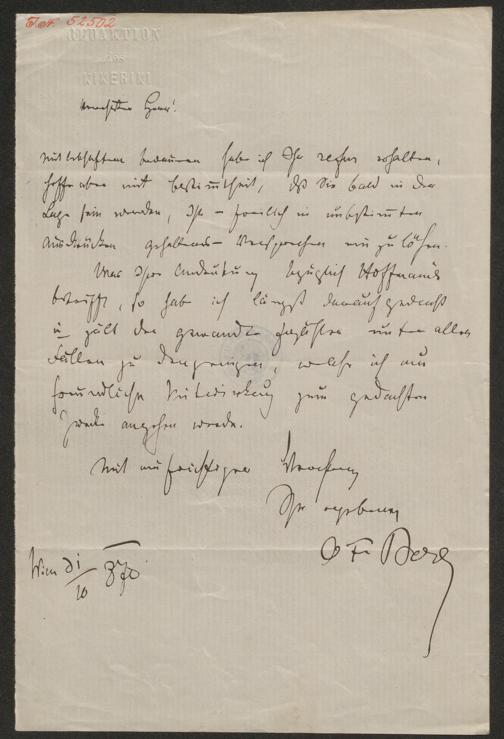 J.N. 52502
REDAKTION
des
KIKERIKI
Verehrter Herr!
Mit lebhaftem Bedauern habe ich Ihr refus erhalten,
hoffe aber mit Bestimtheit, daß Sie bald in der
Lage sein werden, Ihr – freilich in unbestimten
Ausdrücken gehaltenes – Versprechen einzulösen.
Was Ihre Andeutung bezüglich Hoffmanns
betrifft, so hab ich längst darauf gedacht
u zält der gewandte Erzähler unter allen
Fällen zu denjenigen, welche ich um
freundliche Mitwirkung zum gedachten
Zwecke angehen werde.
Mit aufrichtiger Verehrung
Ihr ergebener
O F Berg
Wien 31/10 870